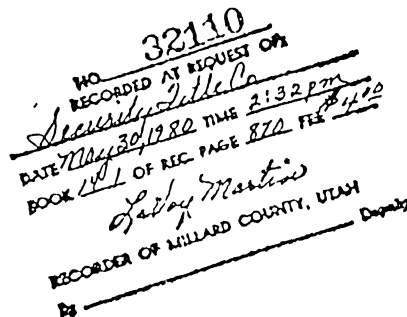 NO. 32110
RECORDED AT REQUEST OF
Security Title Co
DATE May 30, 1980 TIME 2:32 pm
BOOK 141 OF REC. PAGE 870 FEE $4.00
LaVoy Martin
RECORDER OF MILLARD COUNTY, UTAH
By Deputy